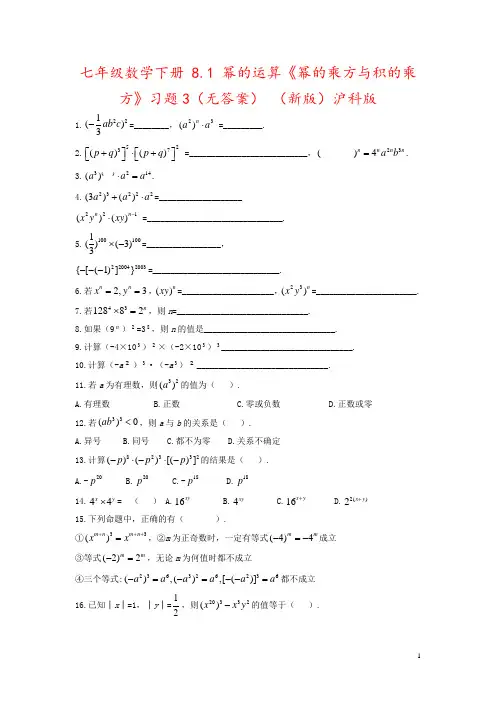 七年级数学下册 8.1 幂的运算《幂的乘方与积的乘
方》习题3（无答案） （新版）沪科版
1.$(-\frac{1}{3}ab^2c)^2$=________，$(a^2)^n \cdot a^3$ =_________.
2.$\left[(p+q)^3\right]^5 \cdot \left[(p+q)^7\right]^2$ =___________________________，(　　　　$)^n = 4^n a^{2n}b^{3n}$.
3.$(a^3)^{(\ \ )} \cdot a^2 = a^{14}$.
4.$(3a^2)^3 + (a^2)^2 \cdot a^2$=___________________
$(x^2y^n)^2 \cdot (xy)^{n-1}$ =_______________________________.
5.$(\frac{1}{3})^{100} \times (-3)^{100}$=_________________，
$\{-[-(-1)^2]^{2004}\}^{2003}$=_____________________________.
6.若$x^n = 2, y^n = 3$，$(xy)^n$=_____________________，$(x^2y^3)^n$=_______________________.
7.若$128^4 \times 8^3 = 2^n$，则n=______________________________.
8.如果（$9^n$）$^2$=$3^8$，则n的值是______________________________.
9.计算(-4×10$^3$)$^2$×(-2×10$^3$)$^3$______________________________.
10.计算(-a$^2$)$^3$·(-a$^3$)$^2$______________________________.
11.若a为有理数，则$(a^3)^2$的值为（　　）.
A.有理数 B.正数 C.零或负数 D.正数或零
12.若$(ab^3)^3 < 0$，则a与b的关系是（　　）.
A.异号 B.同号 C.都不为零 D.关系不确定
13.计算$(-p)^8 \cdot (-p^2)^3 \cdot [(-p)^3]^2$的结果是（　　）.
A.-$p^{20}$ B.$p^{20}$ C.-$p^{18}$ D.$p^{18}$
14.$4^x \times 4^y$= （　　） A.$16^{xy}$ B.$4^{xy}$ C.$16^{x+y}$ D.$2^{2(x+y)}$
15.下列命题中，正确的有（　　　　）.
①$(x^{m+n})^3 = x^{m+n+3}$，②m为正奇数时，一定有等式$(-4)^m = -4^m$成立
③等式$(-2)^m = 2^m$，无论m为何值时都不成立
④三个等式:$(-a^2)^3 = a^6, (-a^3)^2 = a^6, [-(-a^2)]^3 = a^6$都不成立
16.已知｜x｜=1，｜y｜=$\frac{1}{2}$，则$(x^{20})^3 - x^3y^2$的值等于（　　）.
1